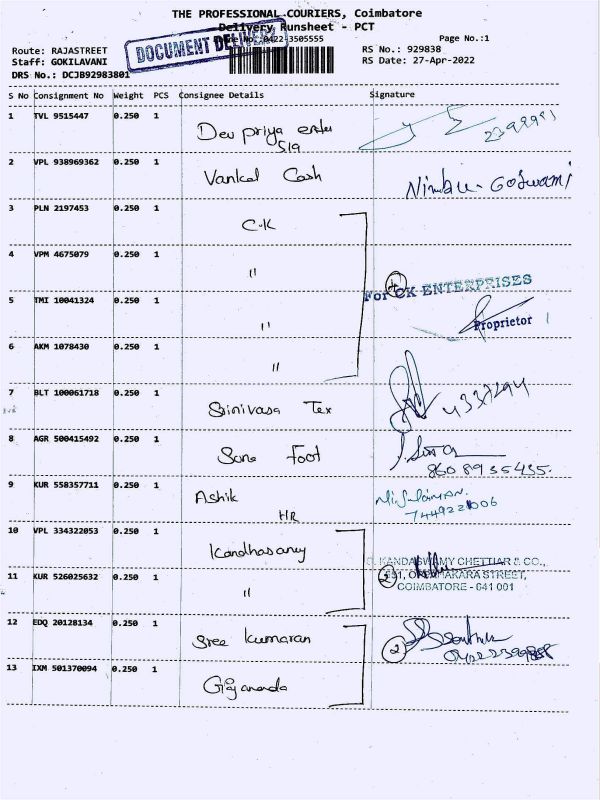 THE PROFESSIONAL COURIERS, Coimbatore
Delivery Runsheet - PCT
Phone No.:0422-3505555
Page No.:1
DOCUMENT DELIVERY
Route: RAJASTREET
RS No.: 929838
Staff: GOKILAVANI
RS Date: 27-Apr-2022
DRS No.: DCJB92983801
S No Consignment No Weight PCS Consignee Details Signature
1 TVL 9515447 0.250 1 Dev priya
519
2 VPL 938969362 0.250 1 Vankal Cash Goswami
3 PLN 2197453 0.250 1 C.K
4 VPM 4675079 0.250 1 "
4
For CK ENTERPRISES
5 TMI 10041324 0.250 1 "
Proprietor
6 AKM 1078430 0.250 1 "
7 BLT 100061718 0.250 1 Srinivasa Tex
8 AGR 500415492 0.250 1 Sana Foot
8608935435.
9 KUR 558357711 0.250 1 Ashik M.Sulaiman.
HR 7449221006
10 VPL 334322053 0.250 1 Kandhasamy
KANDASWAMY CHETTIAR & CO.,
11 KUR 526025632 0.250 1 " 2 STREET,
COIMBATORE - 641 001
12 EDQ 20128134 0.250 1 Sree Kumaran
2
13 IXM 501370094 0.250 1 Gajananda